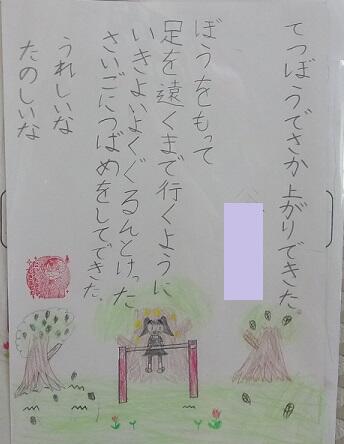 てつぼうでさか上がりできた。
ぼうをもって
足を遠くまで行くように
いきよいよくぐるんとけった
さいごにつばめをしてできた。
うれしいな
たのしいな